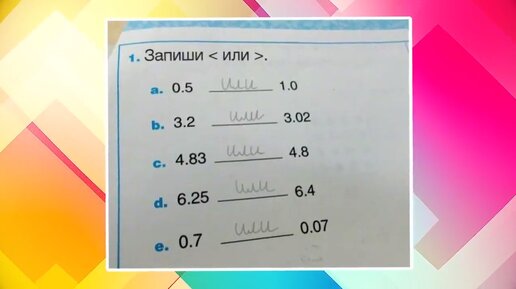 1. Запиши < или >.
a. 0.5 или 1.0
b. 3.2 или 3.02
c. 4.83 или 4.8
d. 6.25 или 6.4
e. 0.7 или 0.07